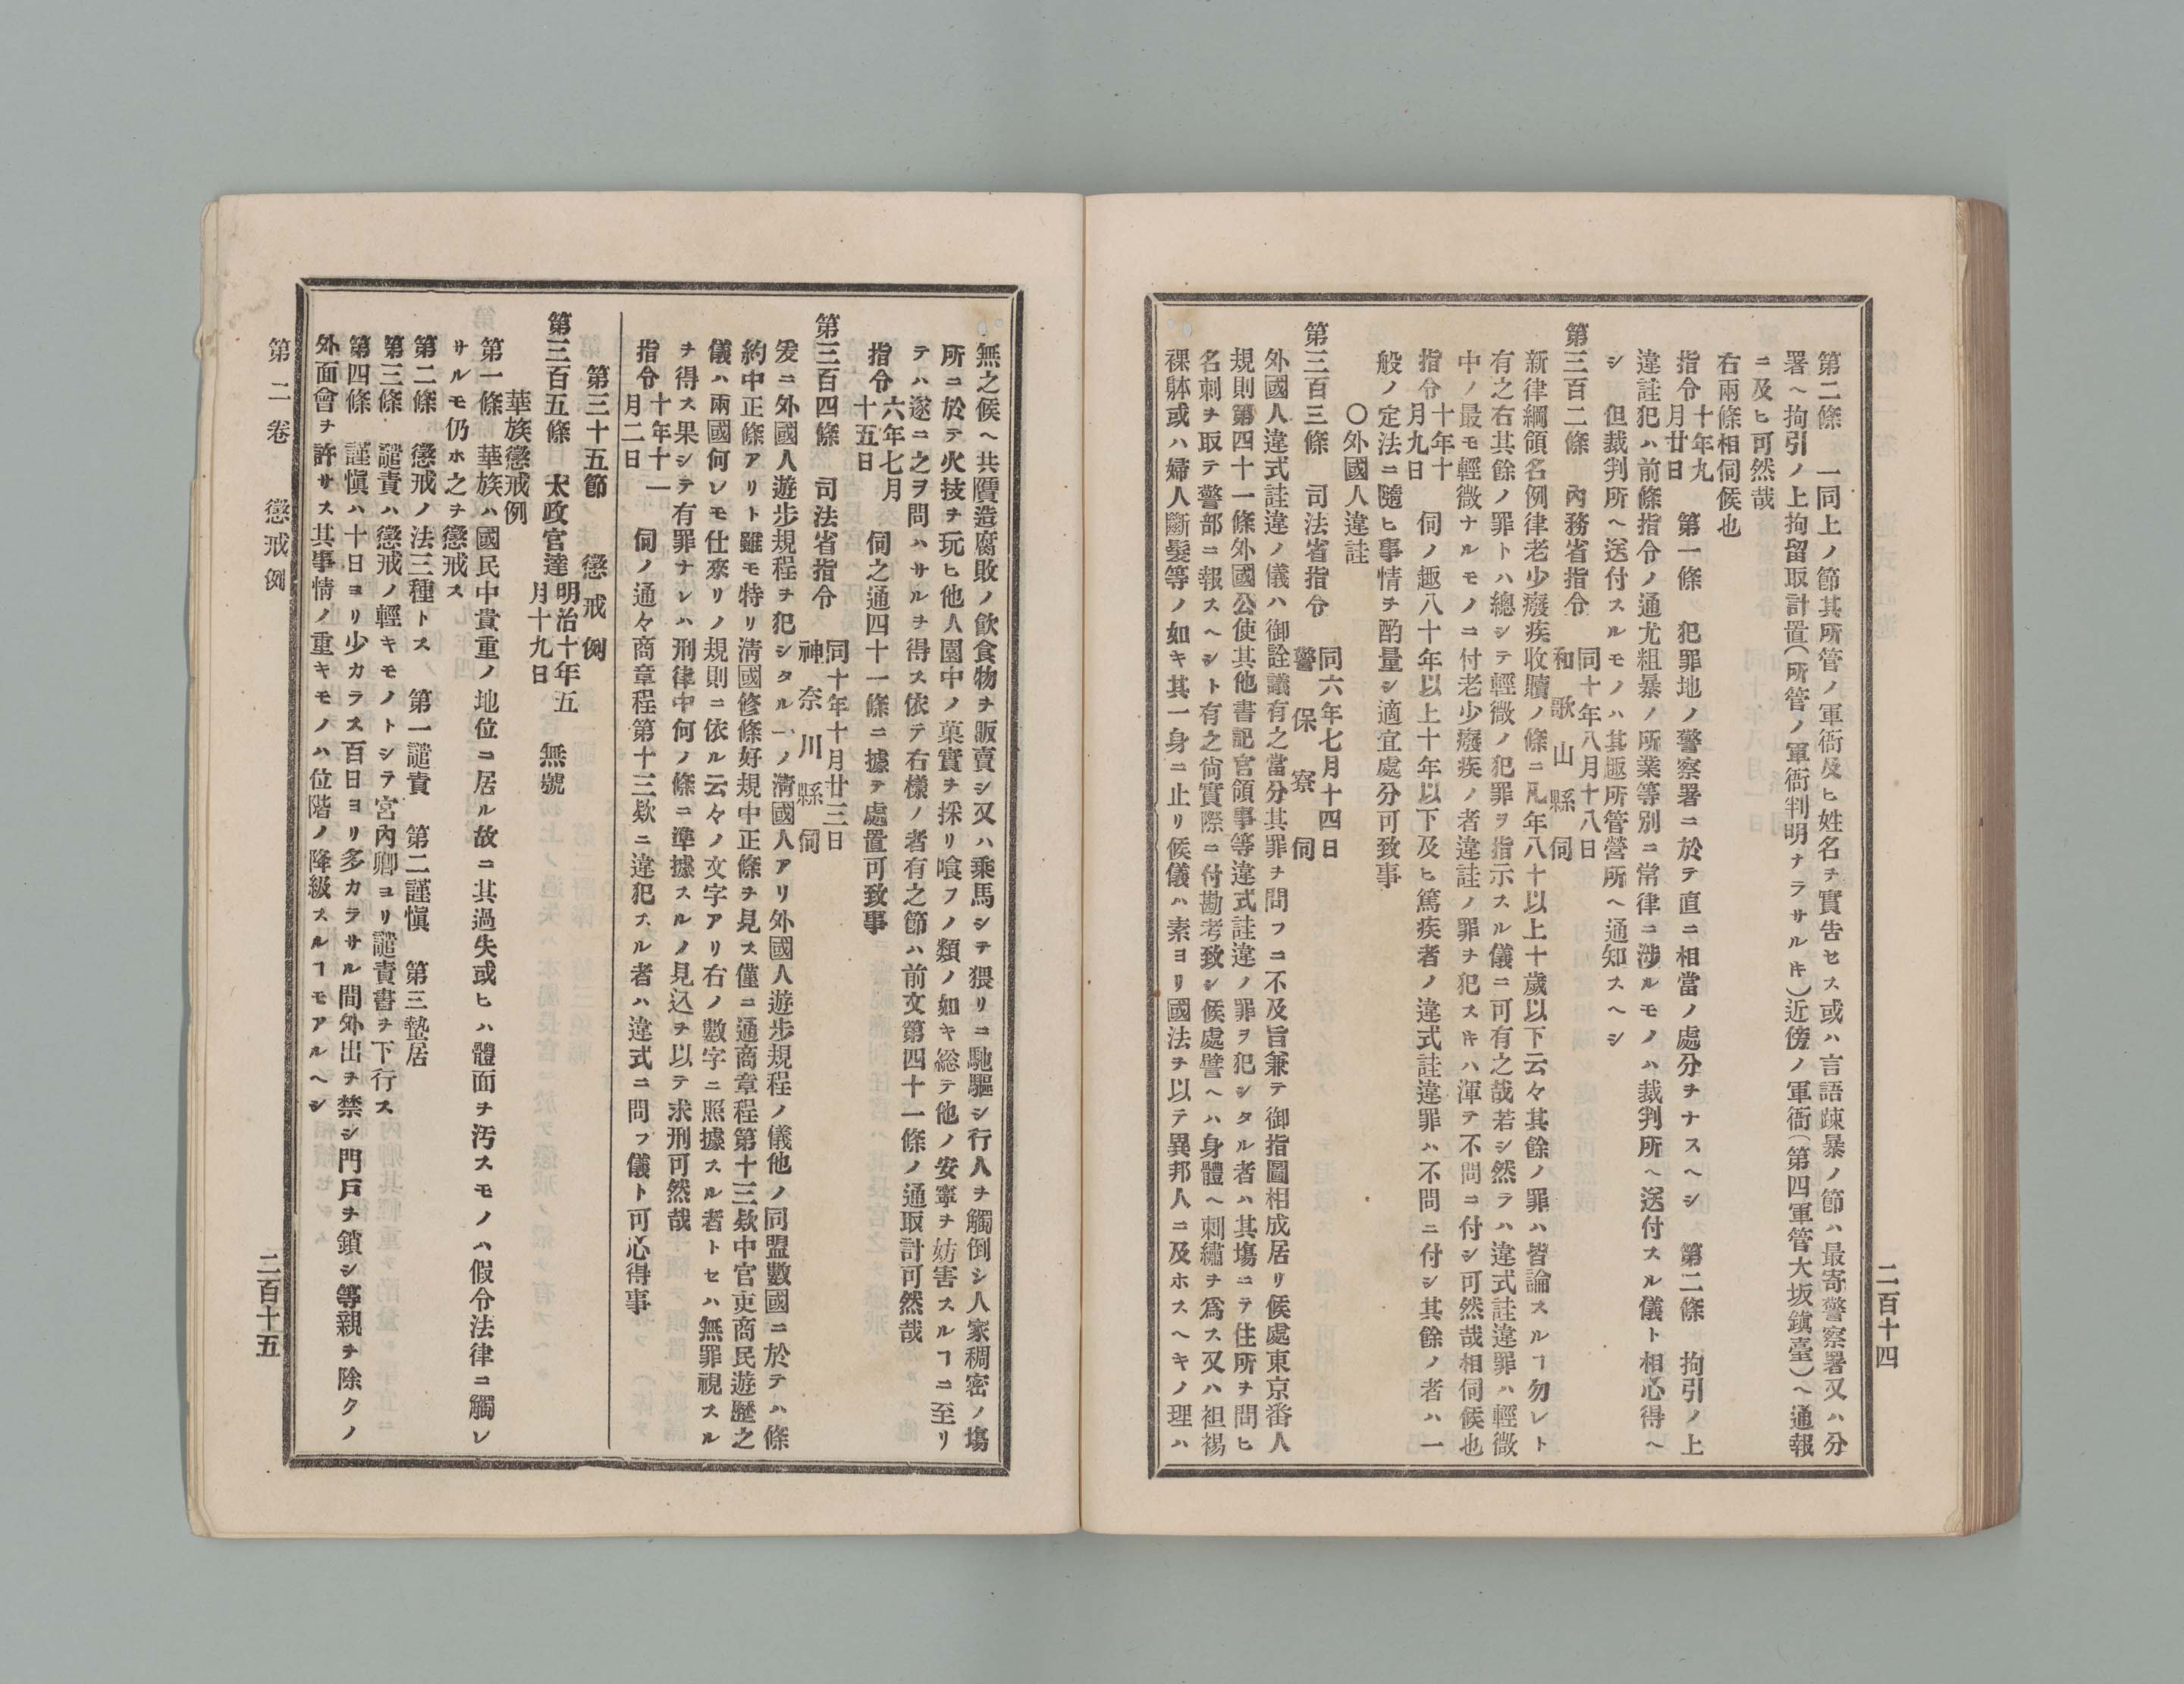 二百十四
第二條　一同上ノ節其所管ノ軍衙及ヒ姓名ヲ實告セス或ハ言語疎暴ノ節ハ最寄警察署又ハ分
署ヘ拘引ノ上拘留取計置（所管ノ軍衙判明ナラサルキ）近傍ノ軍衙（第四軍管大坂鎭臺）ヘ通報
ニ及ヒ可然哉
右兩條相伺候也
指令　十年九月廿日　第一條　犯罪地ノ警察署ニ於テ直ニ相當ノ處分ヲナスヘシ　第二條　拘引ノ上
違註犯ハ前條指令ノ通尤粗暴ノ所業等別ニ常律ニ涉ルモノハ裁判所ヘ送付スル儀ト相心得ヘ
シ　但裁判所ヘ送付スルモノハ其趣所管營所ヘ通知スヘシ
第三百二條　內務省指令　同十年八月十八日　和歌山縣伺
新律綱領名例律老少癈疾收贖ノ條ニ凡年八十以上十歲以下云々其餘ノ罪ハ皆論スルヿ勿レト
有之右其餘ノ罪トハ總シテ輕微ノ犯罪ヲ指示スル儀ニ可有之哉若シ然ラハ違式註違罪ハ輕微
中ノ最モ輕微ナルモノニ付老少癈疾ノ者違註ノ罪ヲ犯スキハ渾テ不問ニ付シ可然哉相伺候也
指令　十年十月九日　伺ノ趣八十年以上十年以下及ヒ篤疾者ノ違式註違罪ハ不問ニ付シ其餘ノ者ハ一
般ノ定法ニ隨ヒ事情ヲ酌量シ適宜處分可致事
〇外國人違註
第三百三條　司法省指令　同六年七月十四日　警保寮伺
外國人違式註違ノ儀ハ御詮議有之當分其罪ヲ問フニ不及旨兼テ御指圖相成居リ候處東京畨人
規則第四十一條外國公使其他書記官領事等違式註違ノ罪ヲ犯シタル者ハ其塲ニテ住所ヲ問ヒ
名刺ヲ取テ警部ニ報スヘシト有之尙實際ニ付勘考致シ候處譬ヘハ身體ヘ刺繡ヲ爲ス又ハ袒裼
裸躰或ハ婦人斷髮等ノ如キ其一身ニ止リ候儀ハ素ヨリ國法ヲ以テ異邦人ニ及ホスヘキノ理ハ
無之候ヘ共贋造腐敗ノ飮食物ヲ販賣シ又ハ乘馬シテ猥リニ馳驅シ行人ヲ觸倒シ人家稠密ノ塲
所ニ於テ火技ヲ玩ヒ他人園中ノ菓實ヲ採リ喰フノ類ノ如キ総テ他ノ安寧ヲ妨害スルヿニ至リ
テハ遂ニ之ヲ問ハサルヲ得ス依テ右樣ノ者有之節ハ前文第四十一條ノ通取計可然哉
指令　六年七月十五日　伺之通四十一條ニ據テ處置可致事
第三百四條　司法省指令　同十年十月廿三日　神奈川縣伺
爰ニ外國人遊步規程ヲ犯シタル一ノ淸國人アリ外國人遊步規程ノ儀他ノ同盟數國ニ於テハ條
約中正條アリト雖モ特リ淸國修條好規中正條ヲ見ス僅ニ通商章程第十三欵中官吏商民遊歷之
儀ハ兩國何レモ仕來リノ規則ニ依ル云々ノ文字アリ右ノ數字ニ照據スル者トセハ無罪視スル
ヲ得ス果シテ有罪ナレハ刑律中何ノ條ニ準據スルノ見込ヲ以テ求刑可然哉
指令　十年十一月二日　伺ノ通々商章程第十三欵ニ違犯スル者ハ違式ニ問フ儀ト可心得事
第三十五節　懲戒例
第三百五條　太政官達　明治十年五月十九日　無號
華族懲戒例
第一條　華族ハ國民中貴重ノ地位ニ居ル故ニ其過失或ヒハ體面ヲ汚スモノハ假令法律ニ觸レ
サルモ仍ホ之ヲ懲戒ス
第二條　懲戒ノ法三種トス　第一譴責　第二謹愼　第三蟄居
第三條　譴責ハ懲戒ノ輕キモノトシテ宮內卿ヨリ譴責書ヲ下行ス
第四條　謹愼ハ十日ヨリ少カラス百日ヨリ多カラサル間外出ヲ禁シ門戶ヲ鎖シ等親ヲ除クノ
外面會ヲ許サス其事情ノ重キモノハ位階ノ降級スルヿモアルヘシ
第二卷　懲戒例　二百十五